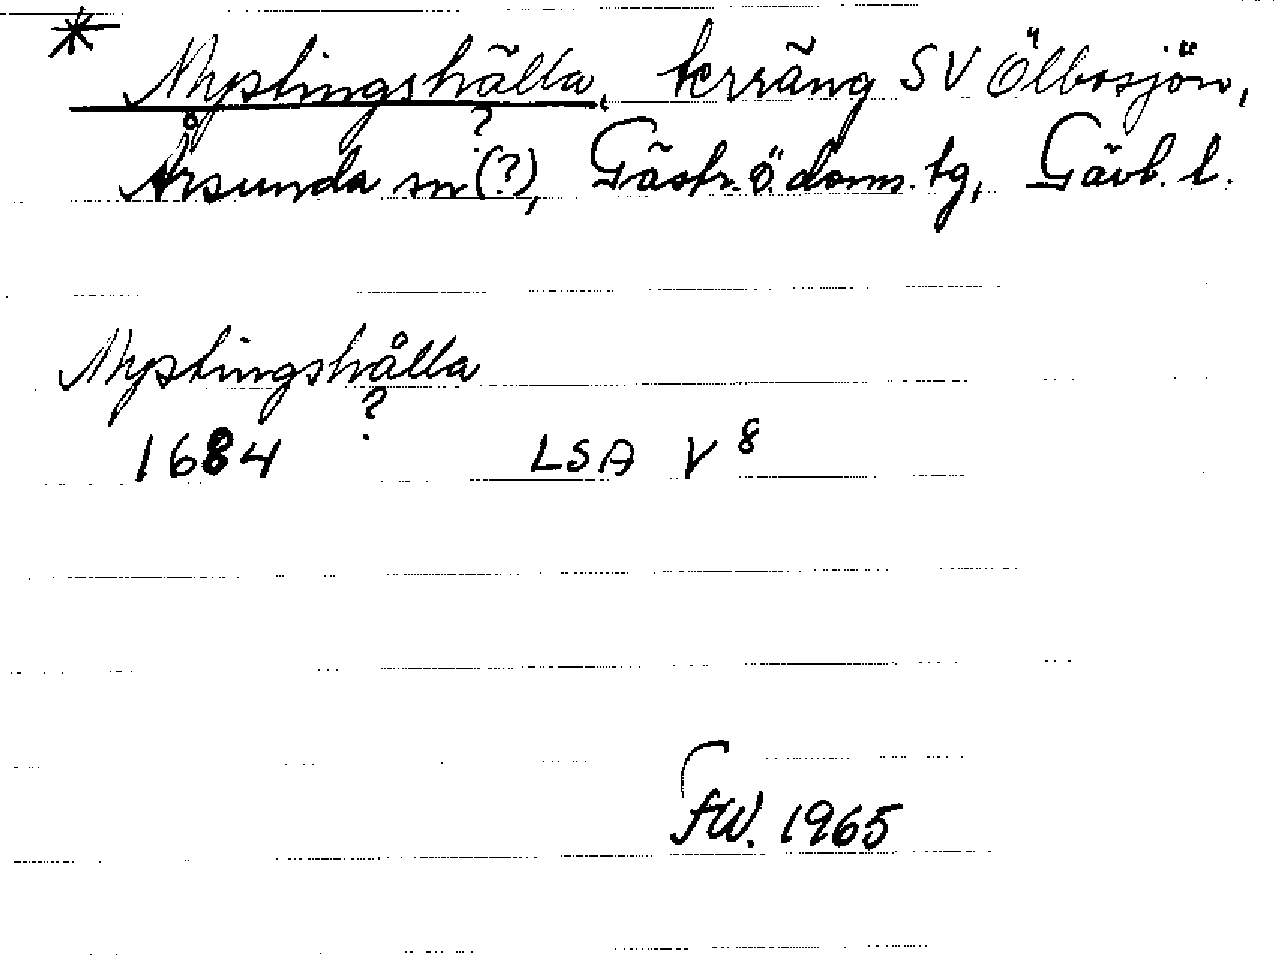 * Nyptingshälla, terräng SV Ölbosjön,
?
Årsunda sn (?), Gästr. ö. doms. tg, Gävl. l.
Nyptingshålla
?
1684 LSA V 8
FW. 1965